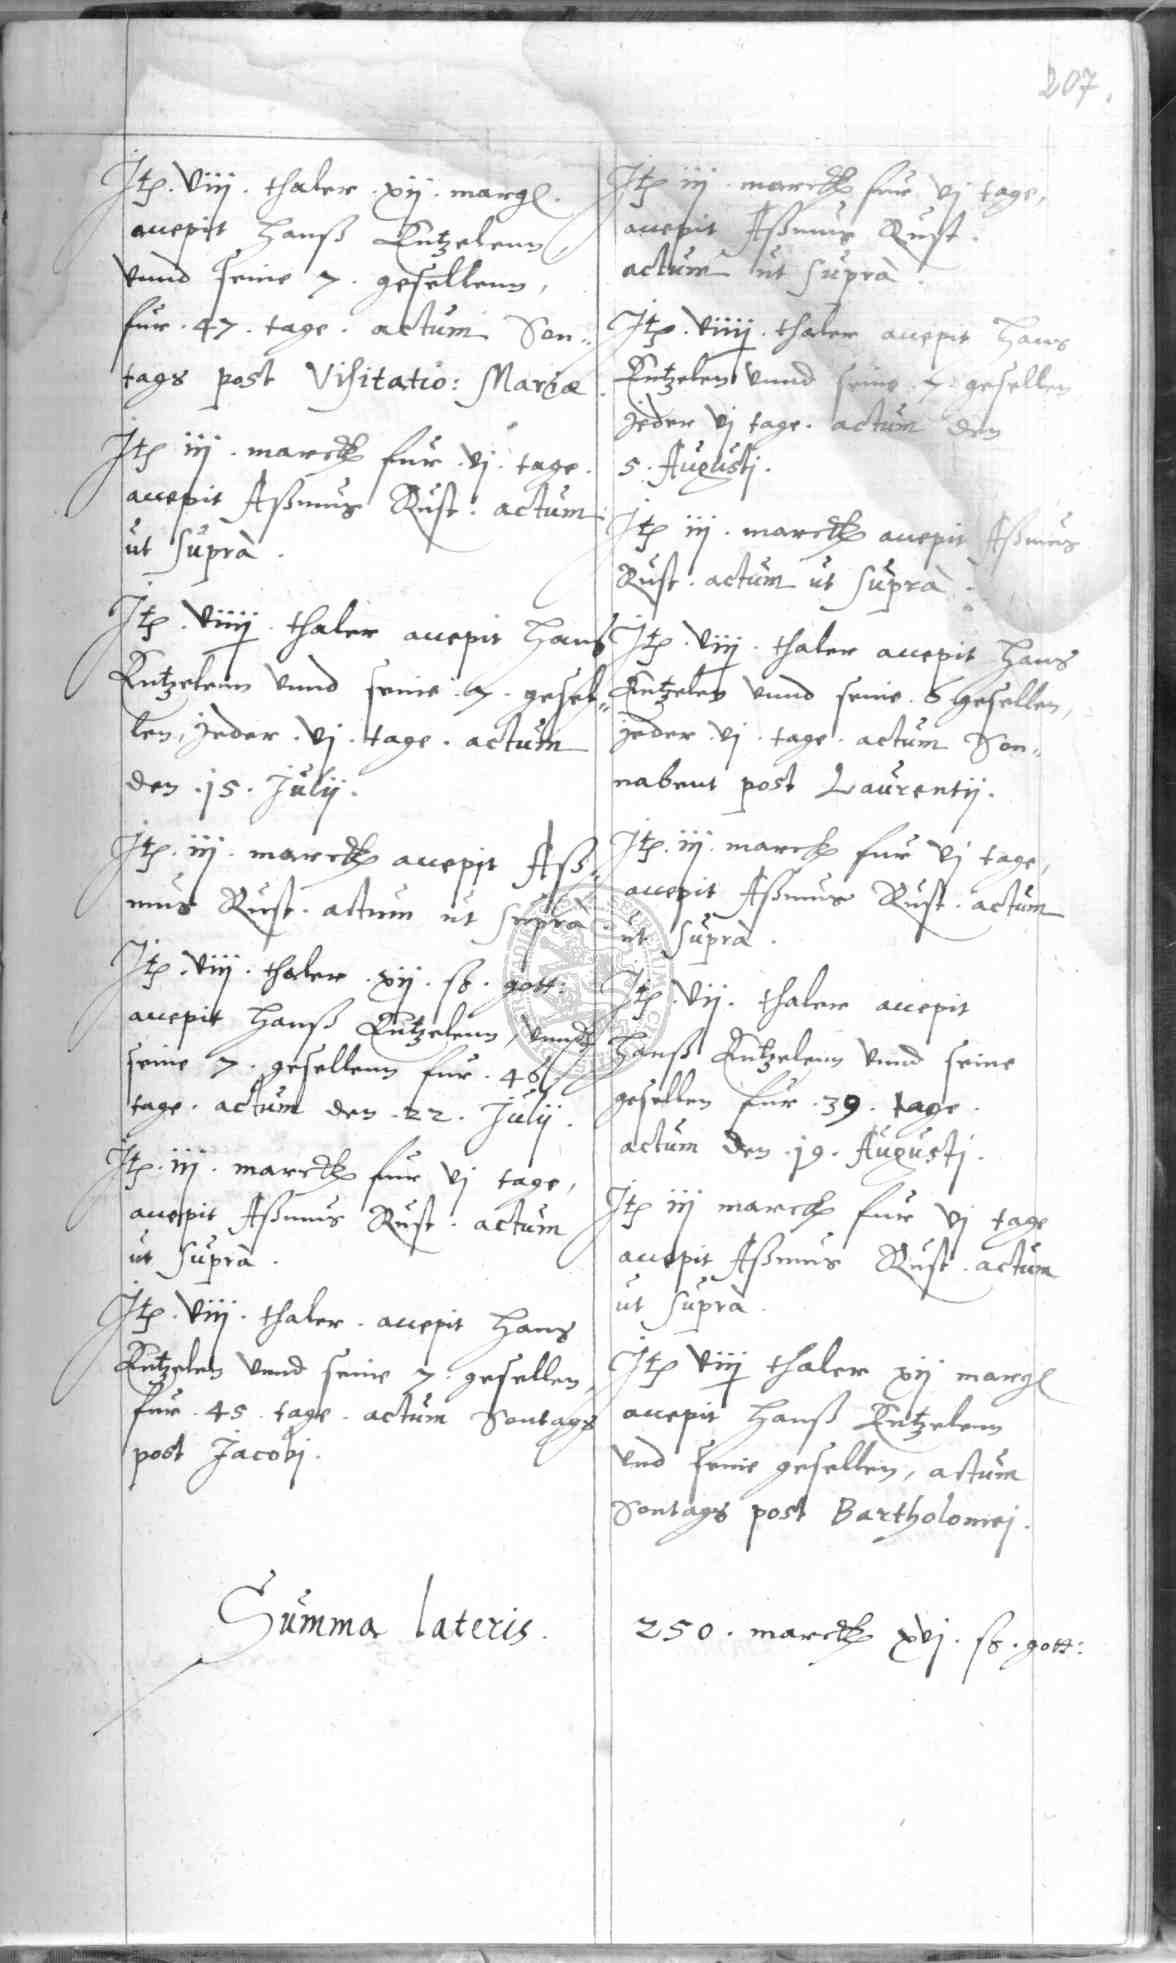 207.
Itp. viij. thaler. xij. margl.
accepit Hanß Entzelenn
vnnd seine 7. gesellenn,
fur. 47. tage. actum Son=
tags post Visitatio: Mariæ.
Itp iij. marck fur. vj. tage.
accepit Aßmus Rust. actum
ut suprà.
Itp. viiij. thaler accepit Hans
Entzelenn vnnd seine. 7. gesel=
len, jeder. vj. tage. actum
den. 15. Julij.
Itp. iij. marck accepit Aß=
mus Rust. actum ut suprà
Itp. viij. thaler. xij. ß. gott:
accepit Hanß Entzelenn, vnnd
seine 7. gesellenn fur. 46
tage. actum den. 22. Julij.
Itp. iij. marck fur vj tage,
accepit Aßmus Rust. actum
ut suprà.
Itp. viij. thaler. accepit Hans
Entzelen vnnd seine 7. gesellen,
fur. 45. tage. actum Sontags
post Jacobj.
Itp iij. marck fur vj tage,
accepit Aßmus Rust.
actum ut suprà.
Itp. viiij. thaler accepit Hans
Entzelen vnnd seine. 7. gesellen
jeder vj tage. actum den
5. Augustj.
Itp iij. marck accepit Aßmus
Rust. actum ut suprà.
Itp. viij. thaler accepit Hans
Entzelen vnnd seine. 6 gesellen,
jeder. vj. tage. actum Son=
nabent post Laurentij.
Itp. iij. marck fur vj tage,
accepit Aßmus Rust. actum
ut suprà.
Itp. vij. thaler accepit
Hanß Entzelenn vnnd seine
gesellen fur. 39. tage.
actum den. 19. Augustj.
Itp iij marck fur vj tage
accepit Aßmus Rust. actum
ut suprà.
Itp viij thaler xij margl
accepit Hanß Entzelenn
vnd seine gesellen, actum
Sontags post Bartholomej.
Summa lateris. 250. marck xvj. ß. gott: